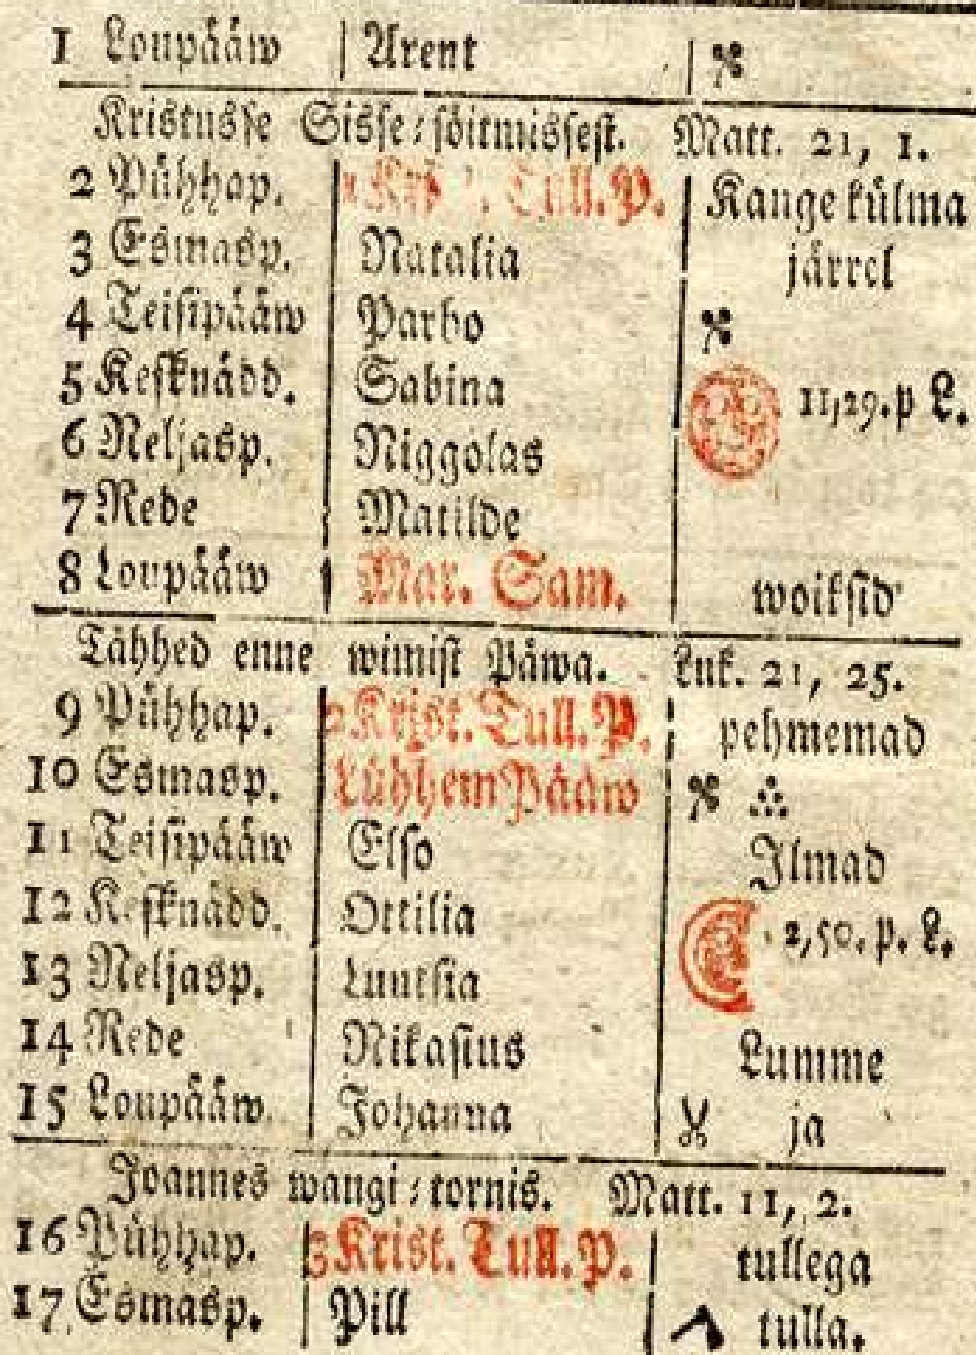 1 Loupääw | Arent
Kristusse Sisse-söitmissest. Matt. 21, 1.
2 Pühhap. Tull. P. Kange külma
3 Esmasp. Natalia järrel
4 Teisipääw Parbo
5 Kesknädd. Sabina 11,29. p L.
6 Neljasp. Niggolas
7 Rede Matilde
8 Loupääw Mar. Sam. woiksid
Tähhed enne wimist Päwa. Luk. 21, 25.
9 Pühhap. 2 Krist. Tull. P. pehmemad
10 Esmasp. Lühhem Pääw
11 Teisipääw Elso Ilmad
12 Kesknädd. Ottilia 2,50. p. L.
13 Neljasp. Luutsia
14 Rede Nikasius Lumme
15 Loupääw Johanna ja
Joannes wangi-tornis. Matt. 11, 2.
16 Pühhap. 3 Krist. Tull. P. tullega
17 Esmasp. Pill tulla.